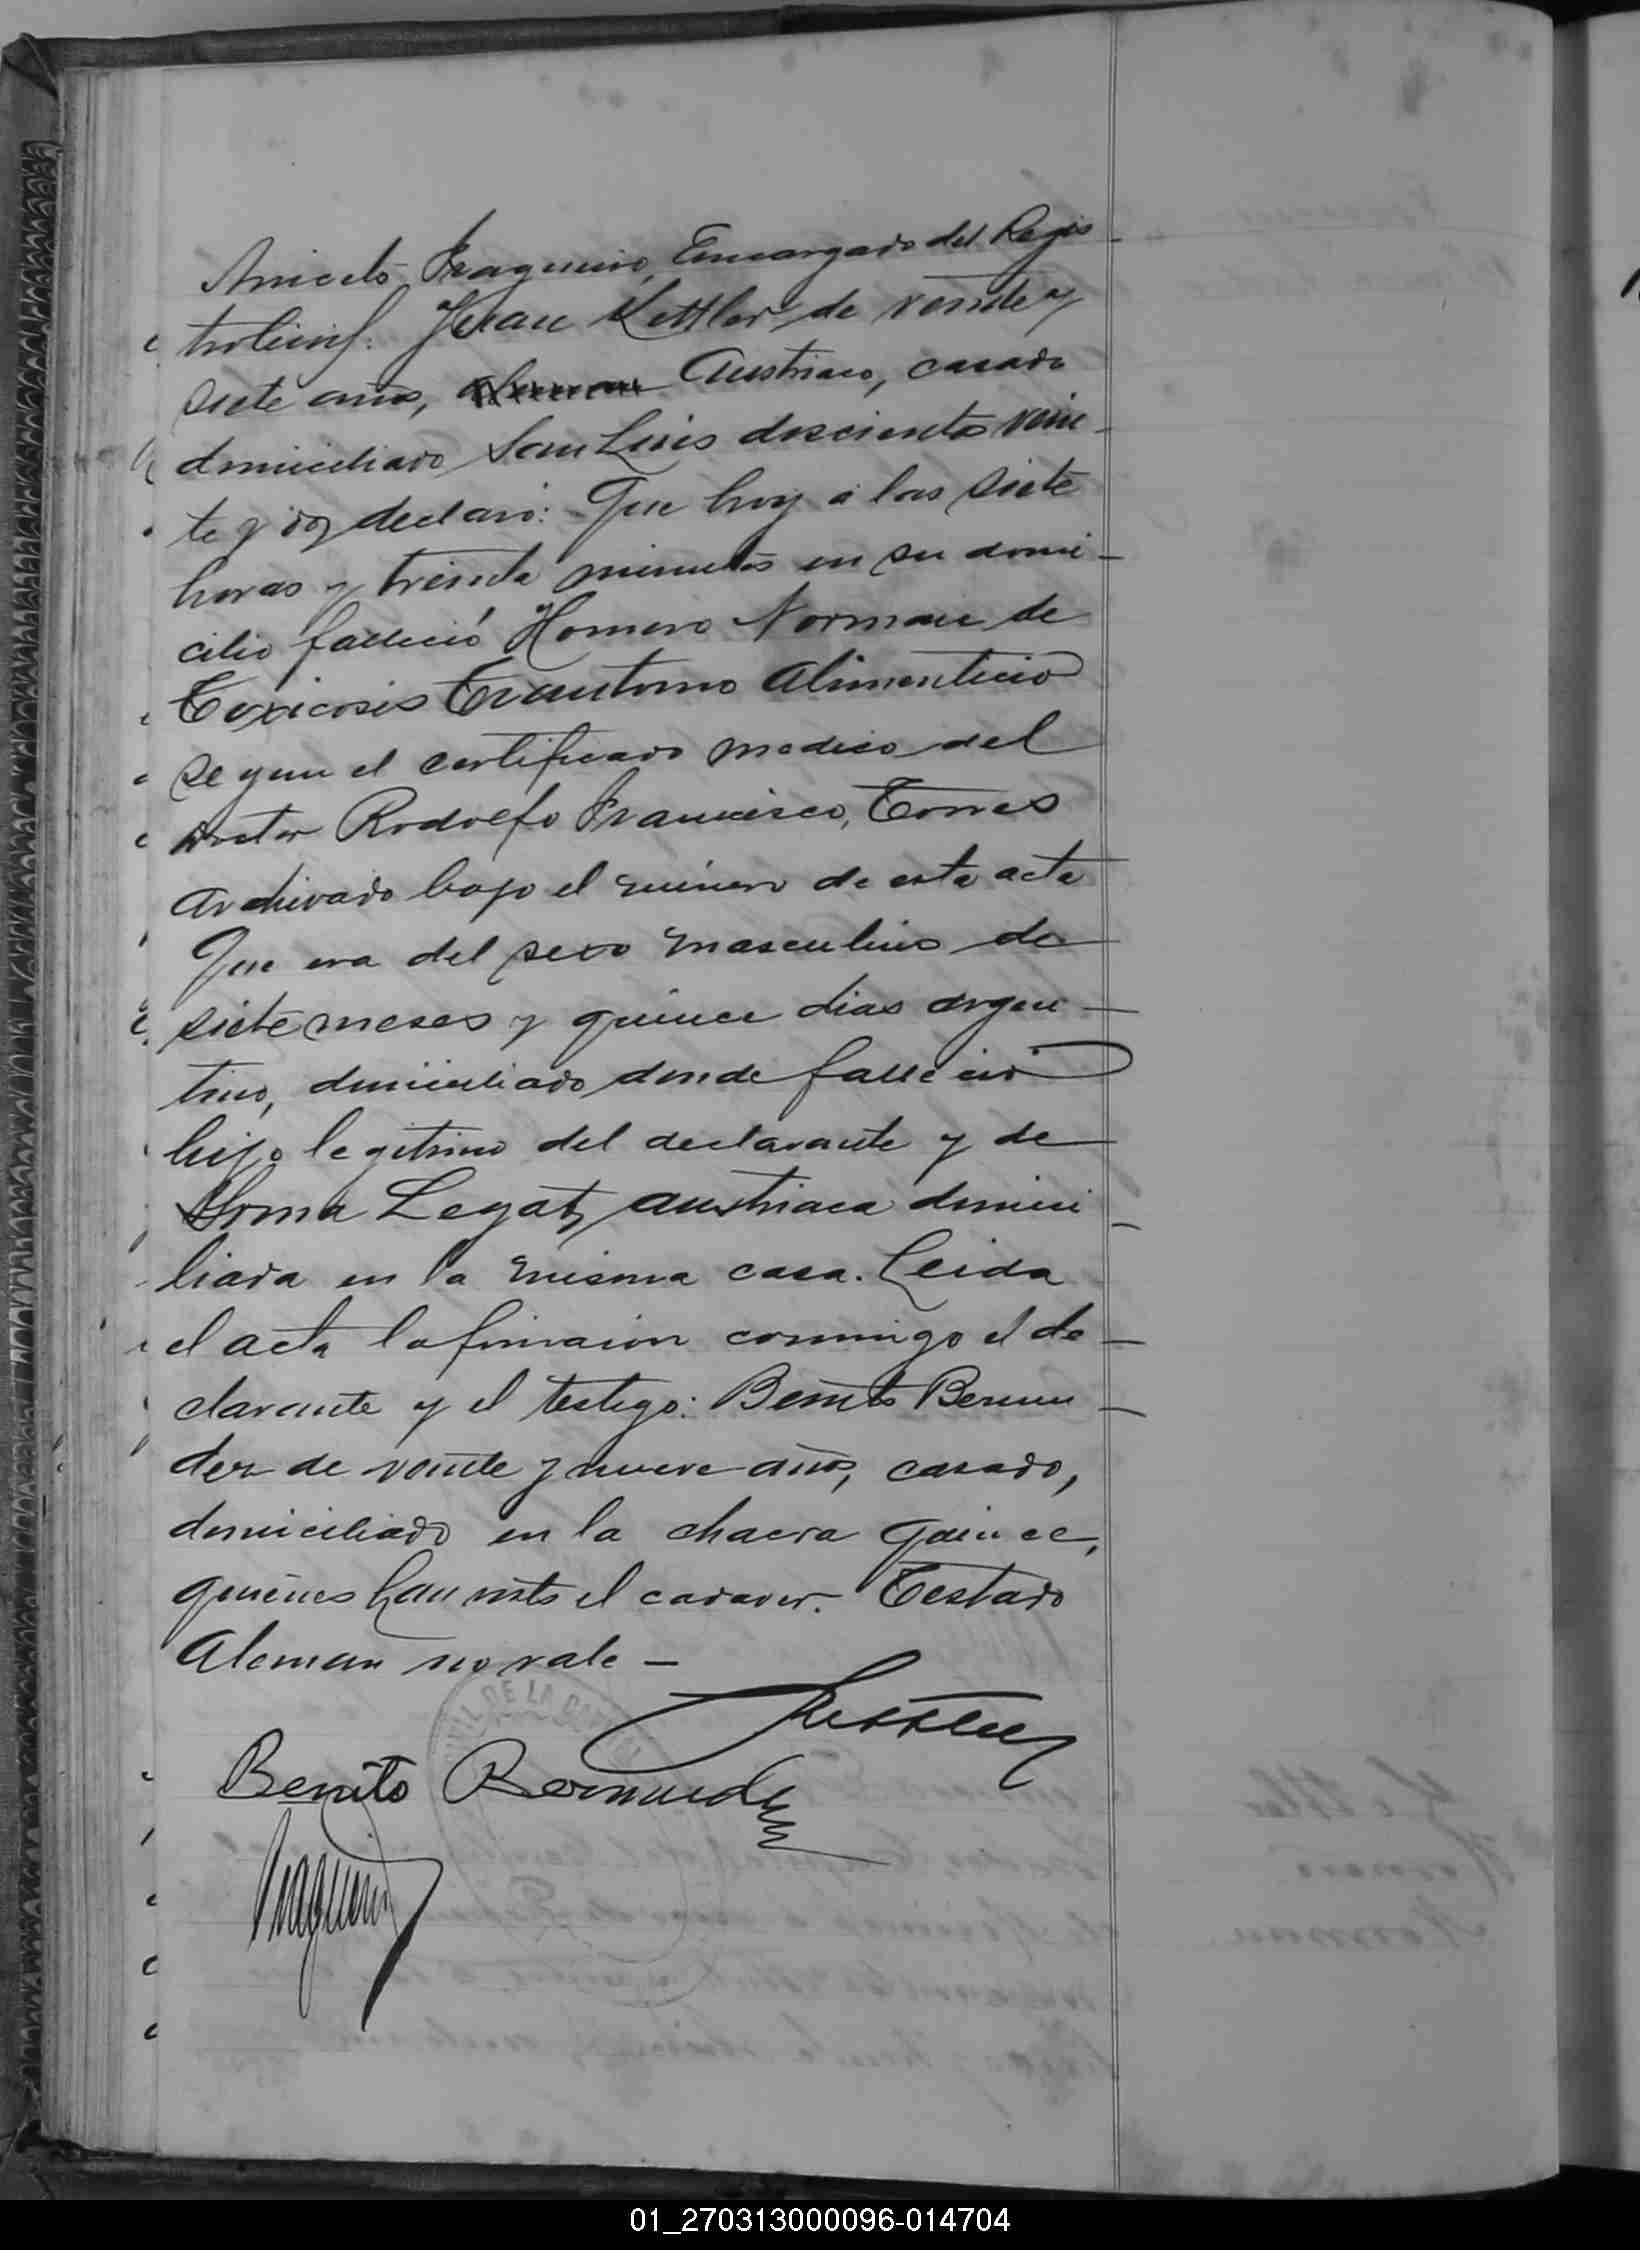 Aniceto Fragueiro, Encargado del Regis
tro Civil: Juan Kettler de veinte y
siete años, aleman Austriaco, casado
domiciliado San Luis doscientos vein
te y dos declaró: Que hoy á las siete
horas y treinta minutos en su domi-
cilio falleció Homero Norman de
Toxicosis Trantorno Alimenticio
segun el certificado medico del
doctor Rodolfo Francisco Torres
archivado bajo el número de esta acta
Que era del sexo masculino de
siete meses y quince dias argen-
tino, domiciliado donde falleció
hijo legitimo del declarante y de
Legat, austriaca domici
liada en la misma casa. Leida
el acta la firmaron conmigo el de-
clarante y el testigo: Benito Bermu-
dez de veinte y nueve años, casado,
domiciliado en la chacra quince,
quienes han visto el cadaver. Testado
Aleman no vale -
Kettler
Benito Bermudez
Fragueiro
CIVIL DE LA
01_270313000096-014704